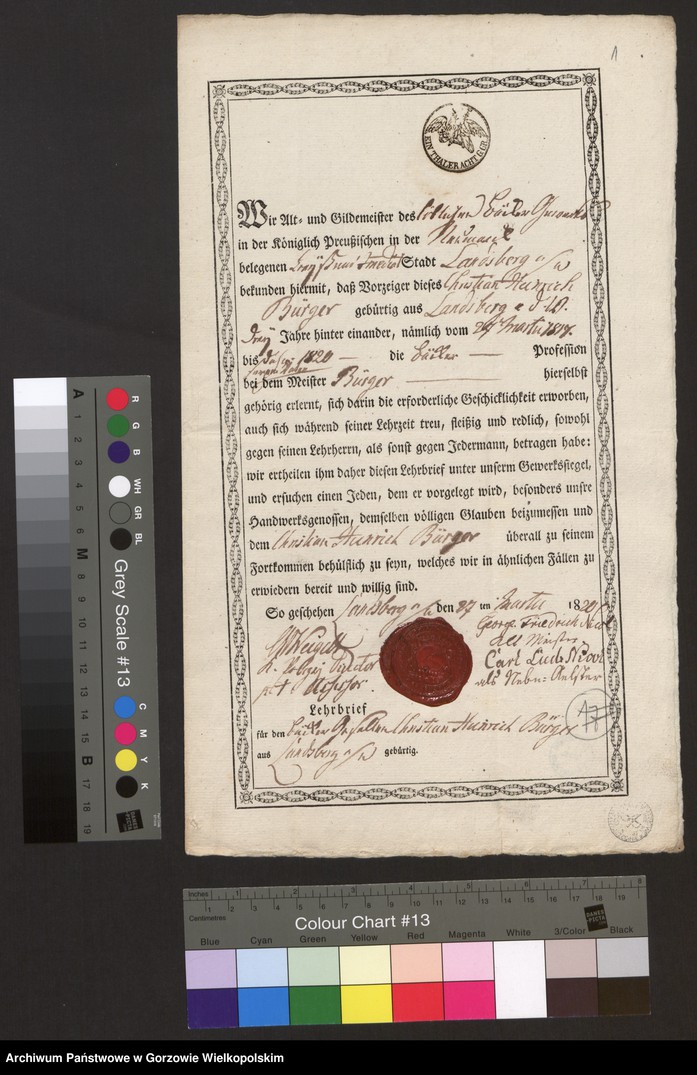 1
EIN THALER ACHT G.GR.
Wir Alt- und Gildemeister des löblichen Bäcker Gewerks
in der Königlich Preußischen in der Neumark
belegenen Stadt Landsberg a/W
bekunden hiermit, daß Vorzeiger dieses Christian Heinrich
Bürger gebürtig aus Landsberg a d W.
drey Jahre hinter einander, nämlich vom Martii
bis 1820 — die Bäcker — Profession
bei dem Meister Bürger — hierselbst
gehörig erlernt, sich darin die erforderliche Geschicklichkeit erworben,
auch sich während seiner Lehrzeit treu, fleißig und redlich, sowohl
gegen seinen Lehrherrn, als sonst gegen Jedermann, betragen habe:
wir ertheilen ihm daher diesen Lehrbrief unter unserm Gewerkssiegel,
und ersuchen einen Jeden, dem er vorgelegt wird, besonders unsre
Handwerksgenossen, demselben völligen Glauben beizumessen und
dem Christian Heinrich Bürger überall zu seinem
Fortkommen behülflich zu seyn, welches wir in ähnlichen Fällen zu
erwiedern bereit und willig sind.
So geschehen Landsberg a/W den 27 ten Martii 1820
George Friedrich
als Meister
Carl Ludw
als Neben-Aeltster
Assessor.
Lehrbrief
für den Bäcker Gesellen Christian Heinrich Bürger
aus Landsberg a/W gebürtig.
17
A 1 2 3 4 5 6 M 8 9 10 11 12 13 14 15 B 17 18 19
R G B WH GR BL
Grey Scale #13
C M Y K
DANES PICTA
Inches 1 2 3 4 5 6 7 8
Centimetres 1 2 3 4 5 6 7 8 9 10 11 12 13 14 15 16 17 18 19
Colour Chart #13
DANES PICTA
Blue Cyan Green Yellow Red Magenta White 3/Color Black
Archiwum Państwowe w Gorzowie Wielkopolskim